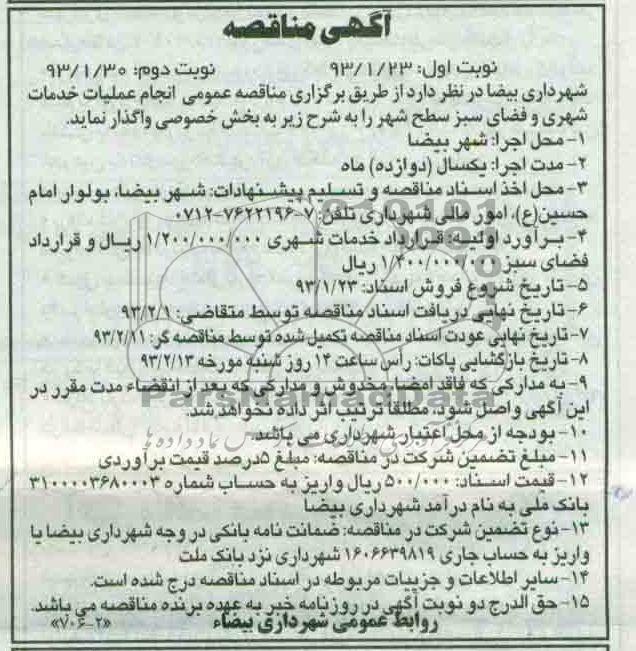 آگهی مناقصه
نوبت اول: ۹۳/۱/۲۳ نوبت دوم: ۹۳/۱/۳۰
شهرداری بیضا در نظر دارد از طریق برگزاری مناقصه عمومی انجام عملیات خدمات
شهری و فضای سبز سطح شهر را به شرح زیر به بخش خصوصی واگذار نماید.
۱- محل اجرا: شهر بیضا
۲- مدت اجرا: یکسال (دوازده) ماه
۳- محل اخذ اسناد مناقصه و تسلیم پیشنهادات: شهر بیضا، بولوار امام
حسین(ع)، امور مالی شهرداری تلفن: ۷-۷۶۲۲۱۹۶-۰۷۱۲
۴- برآورد اولیه: قرارداد خدمات شهری ۱/۲۰۰/۰۰۰/۰۰۰ ریال و قرارداد
فضای سبز ۱/۴۰۰/۰۰۰/۰۰۰ ریال
۵- تاریخ شروع فروش اسناد: ۹۳/۱/۲۳
۶- تاریخ نهایی دریافت اسناد مناقصه توسط متقاضی: ۹۳/۲/۱
۷- تاریخ نهایی عودت اسناد مناقصه تکمیل شده توسط مناقصه گر: ۹۳/۲/۱۱
۸- تاریخ بازگشایی پاکات: رأس ساعت ۱۴ روز شنبه مورخه ۹۳/۲/۱۳
۹- به مدارکی که فاقد امضا، مخدوش و مدارکی که بعد از انقضاء مدت مقرر در
این آگهی واصل شود، مطلقا ترتیب اثر داده نخواهد شد.
۱۰- بودجه از محل اعتبار شهرداری می باشد.
۱۱- مبلغ تضمین شرکت در مناقصه: مبلغ ۵درصد قیمت برآوردی
۱۲- قیمت اسناد: ۵۰۰/۰۰۰ ریال واریز به حساب شماره ۳۱۰۰۰۰۳۶۸۰۰۰۳
بانک ملی به نام درآمد شهرداری بیضا
۱۳- نوع تضمین شرکت در مناقصه: ضمانت نامه بانکی در وجه شهرداری بیضا یا
واریز به حساب جاری ۱۶۰۶۶۳۹۸۱۹ شهرداری نزد بانک ملت
۱۴- سایر اطلاعات و جزییات مربوطه در اسناد مناقصه درج شده است.
۱۵- حق الدرج دو نوبت آگهی در روزنامه خبر به عهده برنده مناقصه می باشد.
روابط عمومی شهرداری بیضاء
«۷۰۶-۲»
ParsNamadData